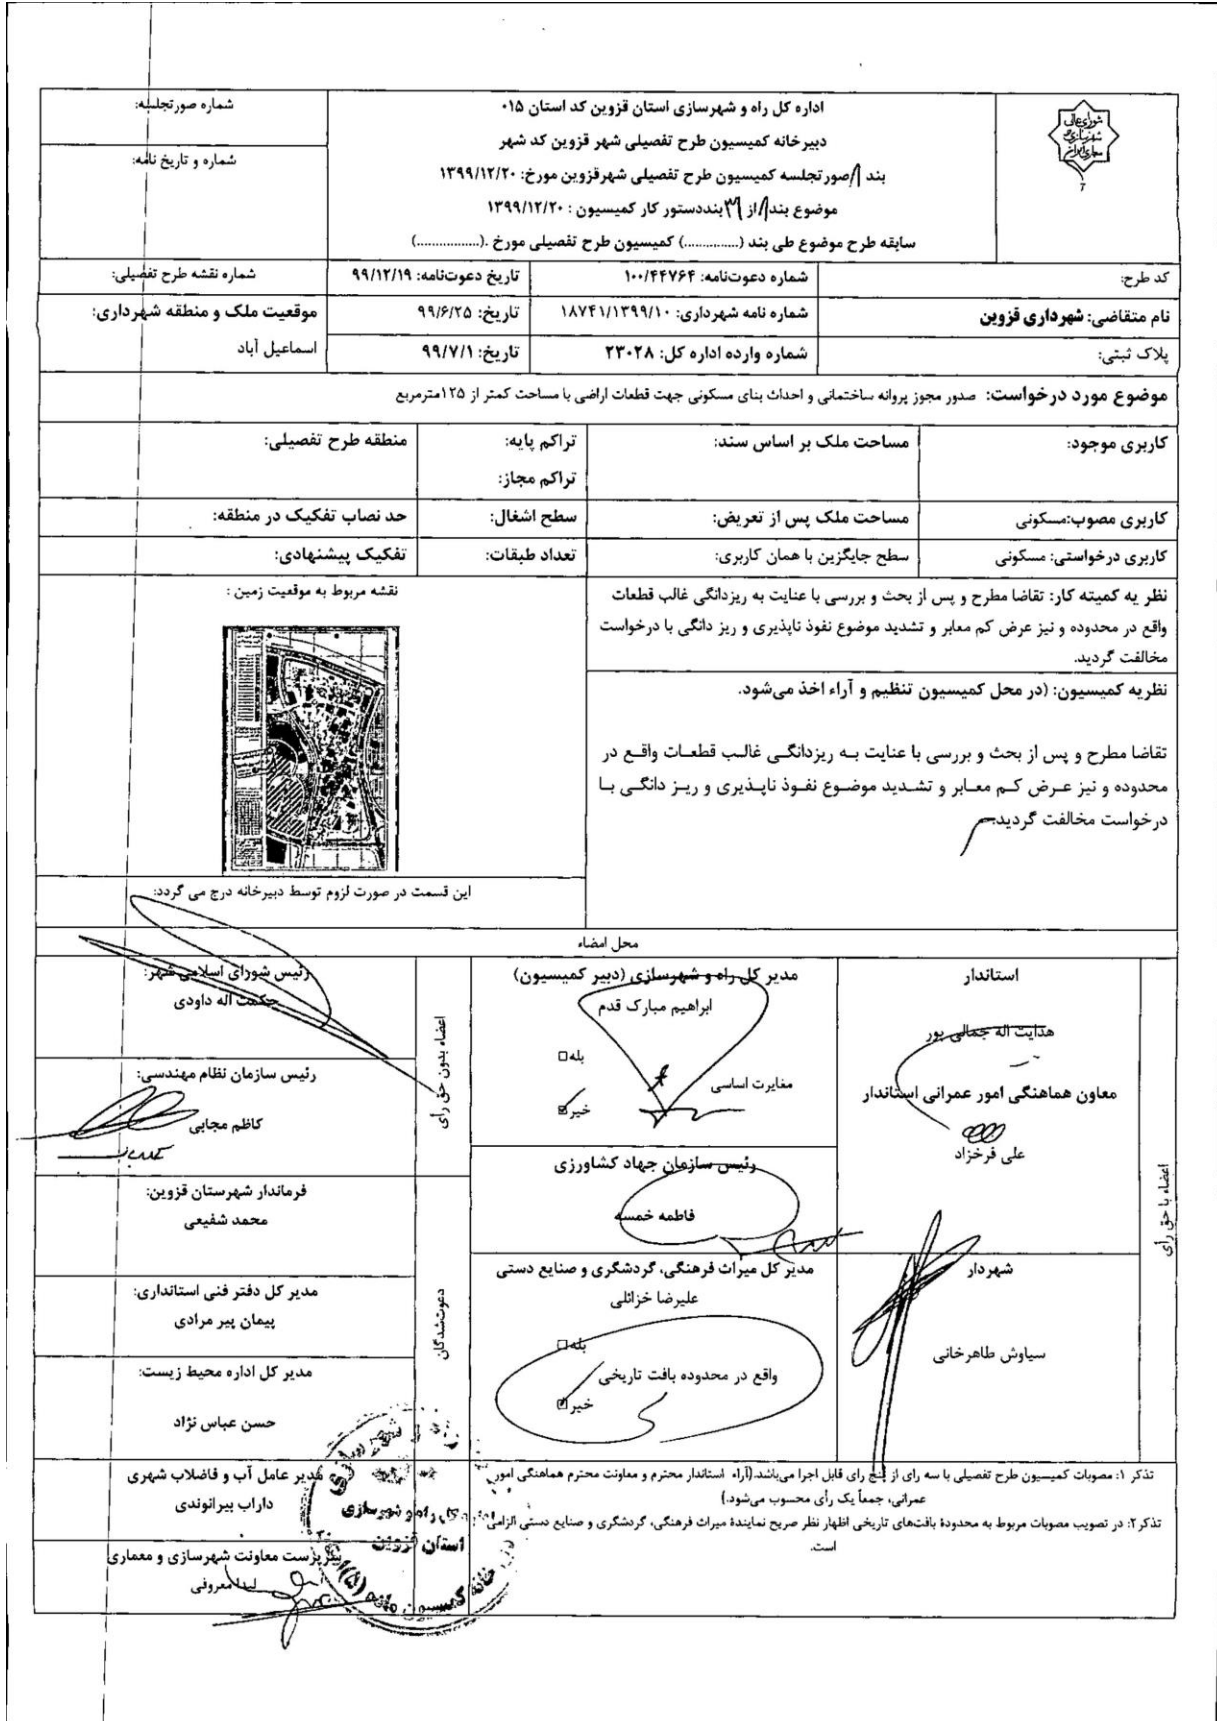 شورای عالی
شهرسازی و
معماری ایران
اداره کل راه و شهرسازی استان قزوین کد استان ۰۱۵
دبیرخانه کمیسیون طرح تفصیلی شهر قزوین کد شهر
بند ۸ صورتجلسه کمیسیون طرح تفصیلی شهرقزوین مورخ: ۱۳۹۹/۱۲/۲۰
موضوع بند ۸ از ۳۹ بنددستور کار کمیسیون : ۱۳۹۹/۱۲/۲۰
سابقه طرح موضوع طی بند (..............) کمیسیون طرح تفصیلی مورخ .(................)
شماره صورتجلسه:
شماره و تاریخ نامه:
کد طرح:
شماره دعوت‌نامه: ۱۰۰/۴۴۷۶۴
تاریخ دعوت‌نامه: ۹۹/۱۲/۱۹
شماره نقشه طرح تفصیلی:
نام متقاضی: شهرداری قزوین
شماره نامه شهرداری: ۱۸۷۴۱/۱۳۹۹/۱۰
تاریخ: ۹۹/۶/۲۵
موقعیت ملک و منطقه شهرداری:
اسماعیل آباد
پلاک ثبتی:
شماره وارده اداره کل: ۲۳۰۲۸
تاریخ: ۹۹/۷/۱
موضوع مورد درخواست: صدور مجوز پروانه ساختمانی و احداث بنای مسکونی جهت قطعات اراضی با مساحت کمتر از ۱۲۵مترمربع
کاربری موجود:
مساحت ملک بر اساس سند:
تراکم پایه:
تراکم مجاز:
منطقه طرح تفصیلی:
کاربری مصوب:مسکونی
مساحت ملک پس از تعریض:
سطح اشغال:
حد نصاب تفکیک در منطقه:
کاربری درخواستی: مسکونی
سطح جایگزین با همان کاربری:
تعداد طبقات:
تفکیک پیشنهادی:
نظر یه کمیته کار: تقاضا مطرح و پس از بحث و بررسی با عنایت به ریزدانگی غالب قطعات
واقع در محدوده و نیز عرض کم معابر و تشدید موضوع نفوذ ناپذیری و ریز دانگی با درخواست
مخالفت گردید.
نقشه مربوط به موقعیت زمین :
نظریه کمیسیون: (در محل کمیسیون تنظیم و آراء اخذ می‌شود.
تقاضا مطرح و پس از بحث و بررسی با عنایت به ریزدانگی غالب قطعات واقع در
محدوده و نیز عرض کم معابر و تشدید موضوع نفوذ ناپذیری و ریز دانگی با
درخواست مخالفت گردید.
این قسمت در صورت لزوم توسط دبیرخانه درج می گردد:
محل امضاء
اعضاء با حق رأی
استاندار
هدایت اله جمالی پور
معاون هماهنگی امور عمرانی استاندار
علی فرخزاد
شهردار
سیاوش طاهرخانی
مدیر کل راه و شهرسازی (دبیر کمیسیون)
ابراهیم مبارک قدم
بله
مغایرت اساسی
خیر
رئیس سازمان جهاد کشاورزی
فاطمه خمسه
مدیر کل میراث فرهنگی، گردشگری و صنایع دستی
علیرضا خزائلی
بله
واقع در محدوده بافت تاریخی
خیر
اعضاء بدون حق رأی
رئیس شورای اسلامی شهر:
حکمت اله داودی
رئیس سازمان نظام مهندسی:
کاظم مجابی
دعوت‌شدگان
فرماندار شهرستان قزوین:
محمد شفیعی
مدیر کل دفتر فنی استانداری:
پیمان پیر مرادی
مدیر کل اداره محیط زیست:
حسن عباس نژاد
مدیر عامل آب و فاضلاب شهری
داراب بیرانوندی
سرپرست معاونت شهرسازی و معماری
لیدا معروفی
تذکر ۱: مصوبات کمیسیون طرح تفصیلی با سه رای از پنج رای قابل اجرا می‌باشد.(آراء استاندار محترم و معاونت محترم هماهنگی امور
عمرانی، جمعاً یک رأی محسوب می‌شود.)
تذکر ۲: در تصویب مصوبات مربوط به محدودهٔ بافت‌های تاریخی اظهار نظر صریح نمایندهٔ میراث فرهنگی، گردشگری و صنایع دستی الزامی
است.
راه و شهرسازی
استان قزوین
کمیسیون ماده (۵)